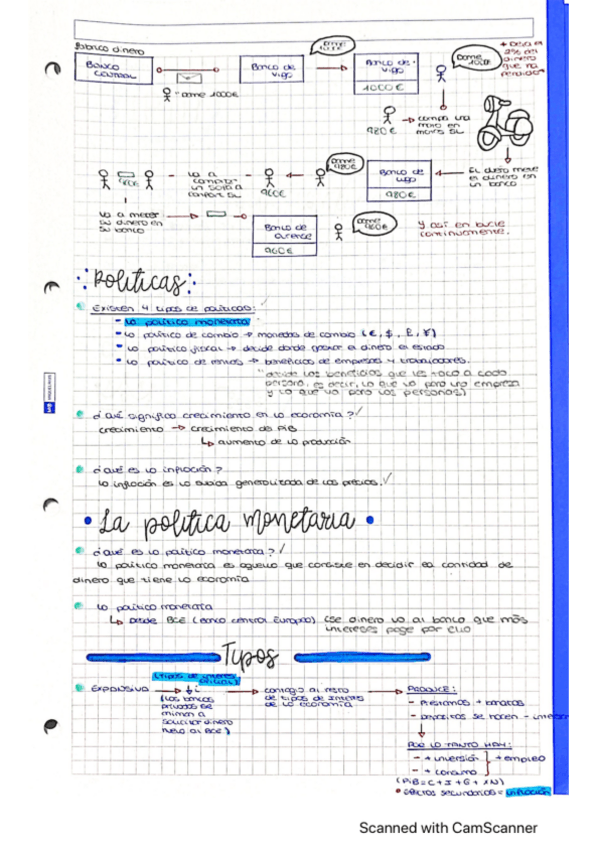 BANCO CENTRAL
Banco de Vigo
Banco de Vigo
1000€
"Dame 1000€
compra una
moto en
motos SL
980€
El dueño mete
el dinero en
un banco
Banco de
Lugo
980€
960€
va a
comprar
un sofá a
confort SL
va a meter
su dinero en
su banco
Banco de
ourense
960€
Y así en bucle
continuamente.
Políticas
Existen 4 tipos de políticas:
- La política monetaria
- La política de cambio → monedas de cambio (€, $, £, ¥)
- La política fiscal → decide donde gastar el dinero el estado
- La política de rentas → beneficios de empresas y trabajadores.
"decide los beneficios que les toca a cada
persona, es decir, lo que va para una empresa
y lo que va para las personas)
¿Qué significa crecimiento en la economía?
crecimiento → crecimiento de PIB
↳ aumento de la producción
¿Qué es la inflación?
La inflación es la subida generalizada de los precios.
La política monetaria
¿Qué es la política monetaria?
La política monetaria es aquella que consiste en decidir la cantidad de
dinero que tiene la economía
La política monetaria
↳ Desde BCE (Banco Central Europeo) (se dinero va al banco que más
intereses page por ello
Tipos
(tipos de interés
oficial)
EXPANSIVA → ↓i → contagio al resto
de tipos de interés
de la economía → PRODUCE:
(Los bancos
privados se
animan a
solicitar dinero
nuevo al BCE)
- Préstamos + baratos
- Depósitos se hacen - interes
POR LO TANTO HAY:
- + inversión } + empleo
- + consumo
(PIB=C+I+G+XN)
• efectos secundarios = inflación
Scanned with CamScanner